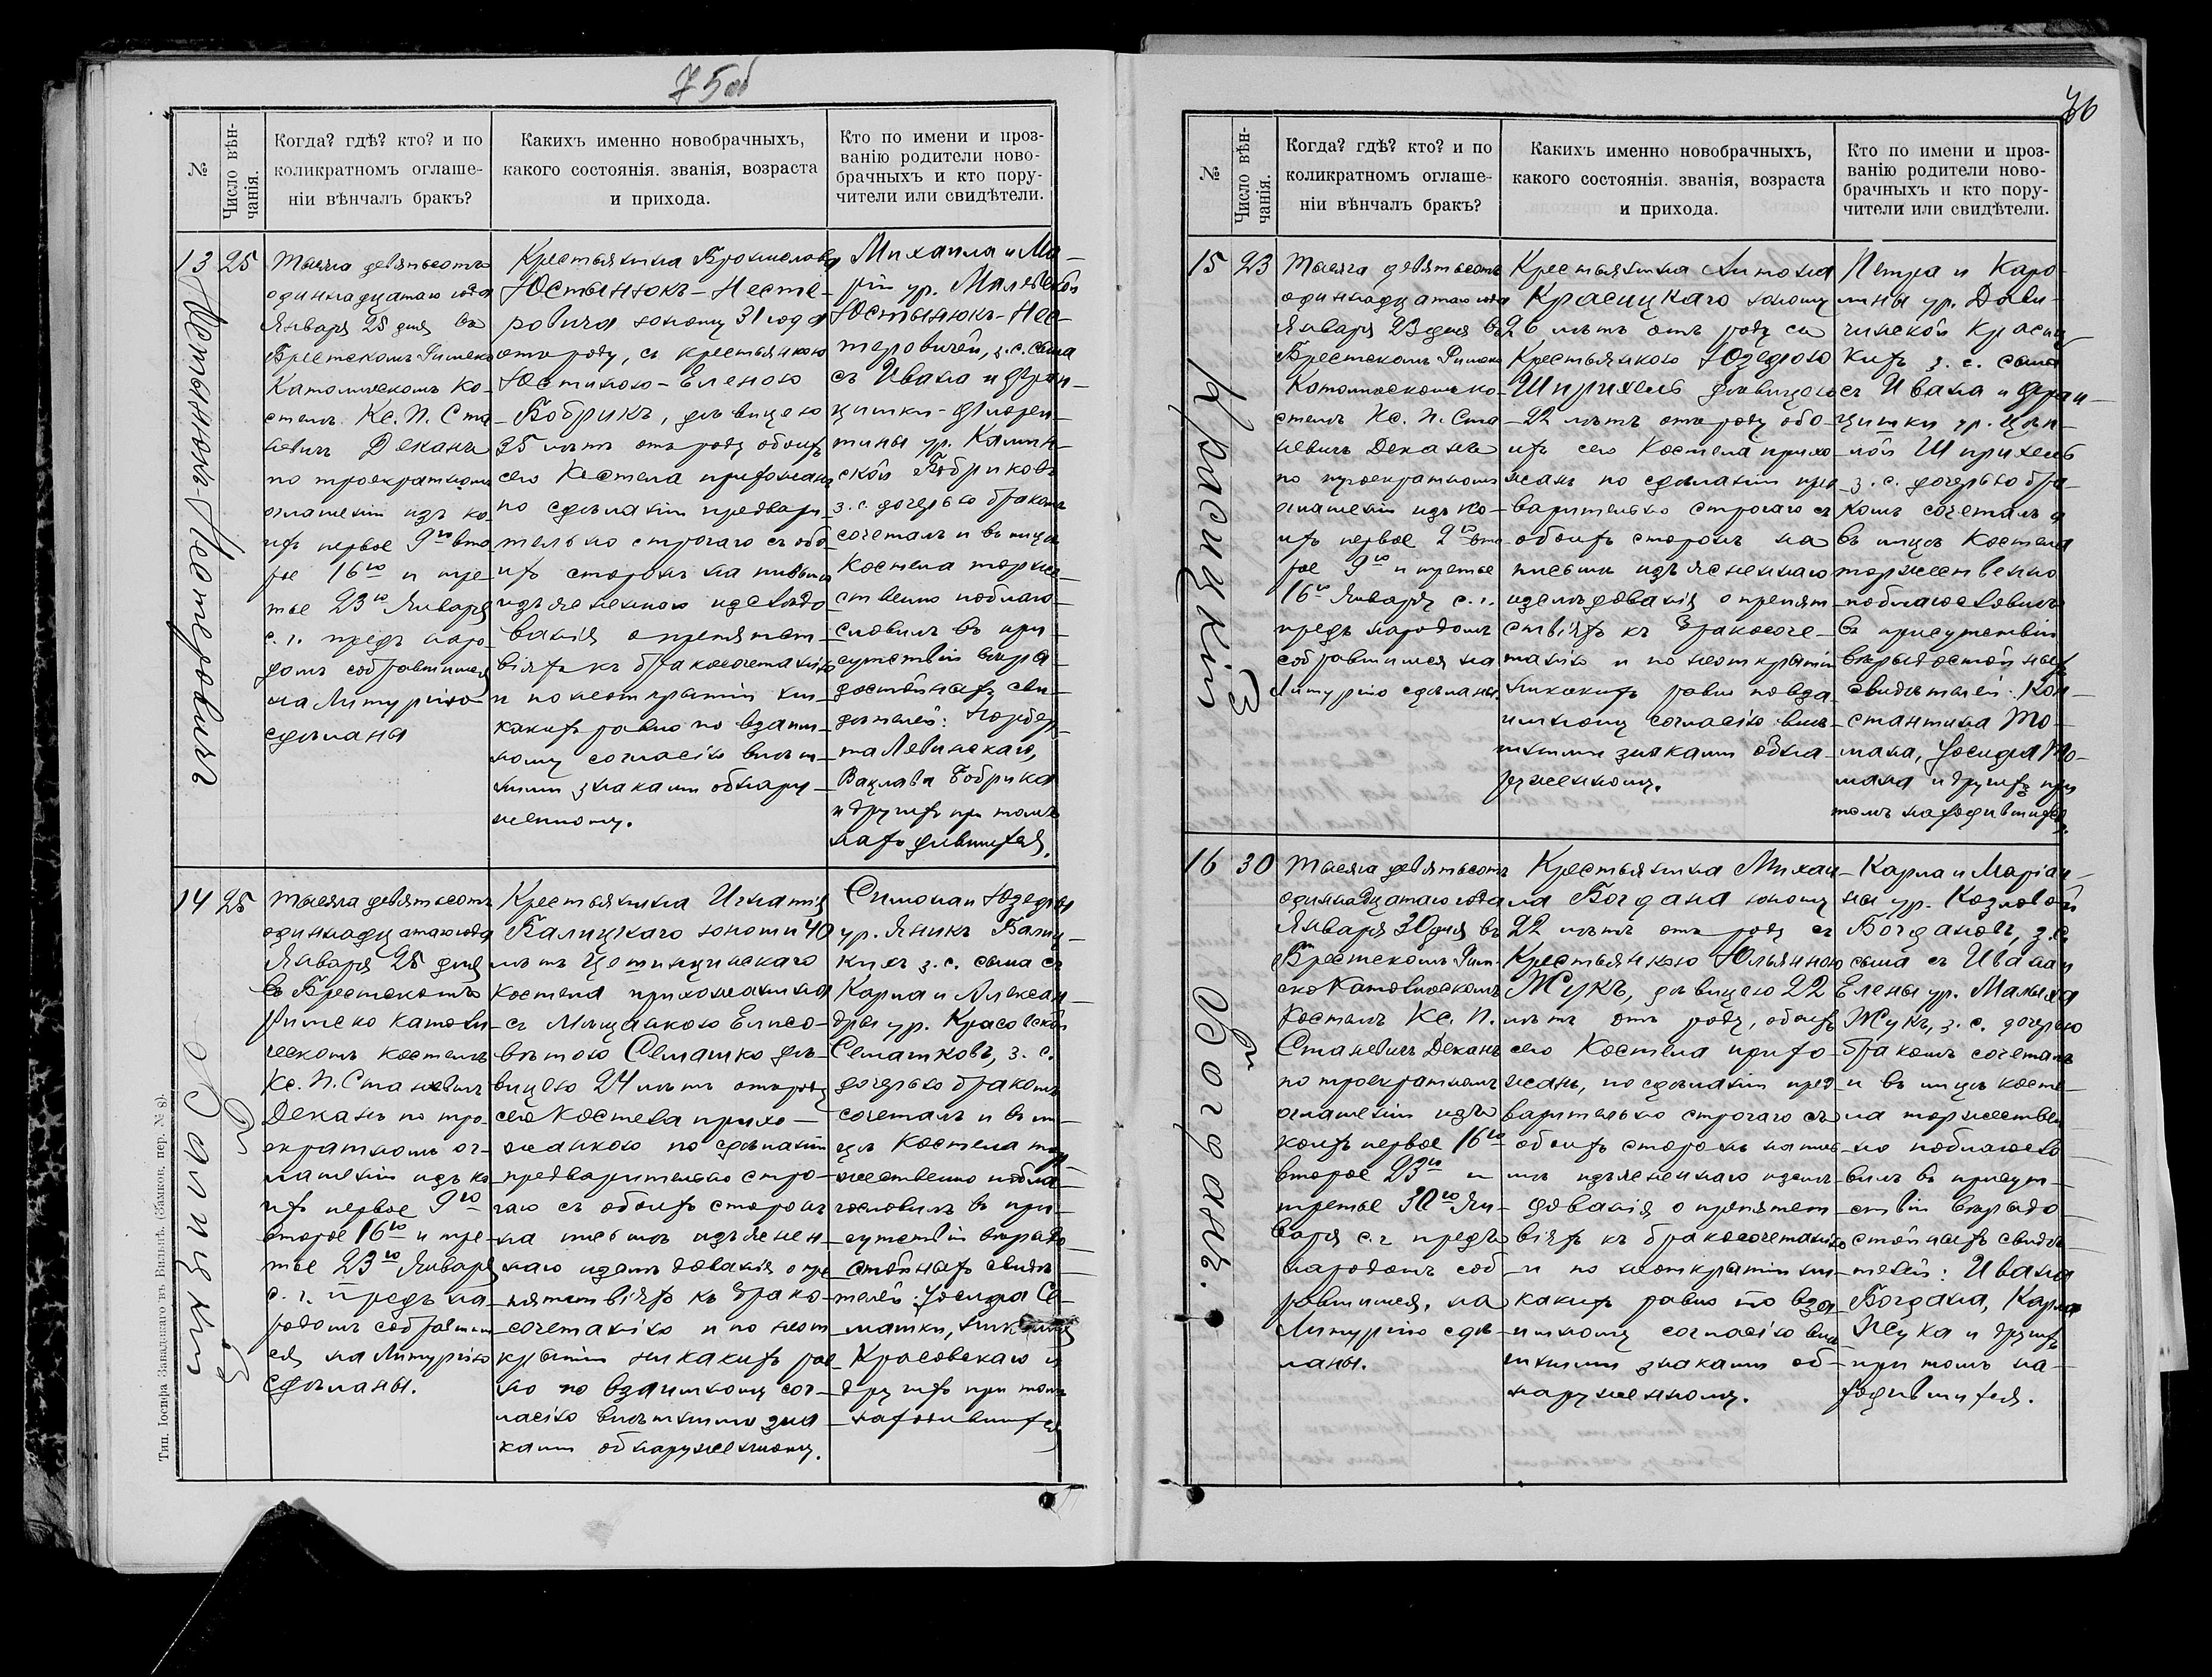 75об
№
Число вѣн-
чанія.
Когда? гдѣ? кто? и по
коликратномъ оглаше-
ніи вѣнчалъ бракъ?
Какихъ именно новобрачныхъ,
какого состоянія. званія, возраста
и прихода.
Кто по имени и проз-
ванію родители ново-
брачныхъ и кто пору-
чители или свидѣтели.
13
25
Юстынюкъ-Нестеровичъ
Тысяча девятьсотъ
одиннадцатаго года
Января 25 дня въ
Брестскомъ Римско
Католическомъ Ко-
стелѣ Кс. П. Ста
невичъ Деканъ
по троекратномъ
оглашеніи изъ ко-
ихъ первое 9го вто
рое 16го и тре-
тье 23го Января
с. г. предъ наро
домъ собравшимся
на Литургію
сдѣланы
Крестьянина Бронислава
Юстынюкъ-Несте-
ровича юношу 31 года
отъ роду, съ крестьянкою
Юстиною-Еленою
Бобрикъ, дѣвицею
35 лѣтъ отъ роду обоихъ
сего Костела прихожанъ
по сдѣланіи предвари-
тельно строгаго съ обо
ихъ сторонъ на письмѣ
изъясненнаго изслѣдо
ванія о препятст-
віяхъ къ бракосочетанію
и по неоткрытіи ни
какихъ равно по взаим
ному согласію внѣш
ними знаками обнару-
женному.
Михаила и Ма-
ріи ур. Малевской
Юстынюкъ-Нес-
теровичей, з. с. сына
съ Ивана и Фран-
цишки-Флорен-
тины ур. Калин-
ской Бобриковъ
з. с. дочерью бракомъ
сочеталъ и въ лицѣ
Костела торже-
ственно поблаго-
словилъ въ при-
сутствіи вѣро-
достойныхъ сви-
дѣтелей: Норбер-
та Левинскаго,
Вацлава Бобрика
и другихъ при томъ
находившихся.
14
25
Балицкій
Тысяча девятьсотъ
одиннадцатаго года
Января 25 дня
въ Брестскомъ
Римско Католи
ческомъ костелѣ
Кс. П. Станевичъ
Деканъ по тро-
екратномъ ог-
лашеніи изъ ко
ихъ первое 9го
второе 16го и тре-
тье 23го Января
с. г. предъ на-
родомъ собравшим
ся на Литургію
сдѣланы.
Крестьянина Игнатія
Балицкаго юношу 40
лѣтъ
костела прихожанина
съ Мѣщанкою Елисо-
ветою Семашко дѣ-
вицею 24 лѣтъ отъ роду
сего Костела прихо-
жанкою по сдѣланіи
предварительно стро-
гаго съ обоихъ сторонъ
на письмѣ изъяснен-
наго изслѣдованія о пре
пятствіяхъ къ брако-
сочетанію и по неот
крытіи никакихъ рав
но по взаимному сог-
ласію внѣшними зна
ками обнаруженному.
Симона и Юзефы
ур. Яникъ Балиц-
кихъ з. с. сына съ
Карла и Алексан-
дры ур. Красовской
Семашковъ, з. с.
дочерью бракомъ
сочеталъ и въ ли-
цѣ Костела тор-
жественно побла-
гословилъ въ при-
сутствіи вѣродо-
стойныхъ свидѣ-
телей: Іосифа Се-
машки,
Красовскаго и
другихъ при томъ
находившихся
Тип. Іосифа Завадзкаго въ Вильнѣ. (Замков. пер. № 8).
76
№
Число вѣн-
чанія.
Когда? гдѣ? кто? и по
коликратномъ оглаше-
ніи вѣнчалъ бракъ?
Какихъ именно новобрачныхъ,
какого состоянія. званія, возраста
и прихода.
Кто по имени и проз-
ванію родители ново-
брачныхъ и кто пору-
чители или свидѣтели.
15
23
Красицкій
Тысяча девятьсотъ
одиннадцатаго года
Января 23 дня въ
Брестскомъ Римско
Католическомъ ко-
стелѣ Кс. П. Ста
невичъ Деканъ
по троекратномъ
оглашеніи изъ ко-
ихъ первое 2го вто
рое 9го и третье
16го Января с. г.
предъ народомъ
собравшимся на
Литургію сдѣланы.
Крестьянина Антона
Красицкаго юношу
26 лѣтъ отъ роду съ
Крестьянкою Юзефою
Шприхель дѣвицею
22 лѣтъ отъ роду обо-
ихъ сего Костела прихо
жанъ по сдѣланіи пред
варительно строгаго съ
обоихъ сторонъ на
письмѣ изъясненнаго
изслѣдованія о препят
ствіяхъ къ бракосоче-
танію и по неоткрытіи
никакихъ равно по вза
имному согласію внѣ-
шними знаками обна
руженному.
Петра и Каро-
лины ур. Дави-
чинской Красиц
кихъ з. с. сына
съ Ивана и Фран-
цишки ур.
Шприхель
з. с. дочерью бра-
комъ сочеталъ и
въ лицѣ Костела
торжественно
поблагословилъ
въ присутствіи
вѣродостойныхъ
свидѣтелей: Кон-
стантина То-
маля, Іосифа То-
маля и другихъ при
томъ находившихся.
16
30
Богданъ.
Тысяча девятьсотъ
одиннадцатаго года
Января 30 дня въ
Брестскомъ Рим-
ско Католическомъ
Костелѣ Кс. П.
Станевичъ Деканъ
по троекратномъ
оглашеніи изъ
коихъ первое 16го
второе 23го и
третье 30го Ян-
варя с. г. предъ
народомъ соб
равшимся, на
Литургію сдѣ-
ланы.
Крестьянина Михаи-
ла Богдана юношу
22 лѣтъ отъ роду съ
Крестьянкою Юльянною
Жукъ, дѣвицею 22
лѣтъ отъ роду, обоихъ
сего Костела прихо-
жанъ, по сдѣланіи пред
варительно строгаго съ
обоихъ сторонъ на пись
мѣ изъясненнаго изслѣ-
дованія о препятст
віяхъ къ бракосочетанію
и по неоткрытіи ни-
какихъ равно по вза-
имному согласію внѣ-
шними знаками об-
наруженному.
Карла и Маріан-
ны ур. Козловой
Богдановъ, з. с.
сына съ Ивана и
Елены ур. Малыха
Жукъ, з. с. дочерью
бракомъ сочеталъ
и въ лицѣ косте-
ла торжествен
но поблагосло
вилъ въ присут-
ствіи вѣродо
стойныхъ свидѣ-
телей: Ивана
Богдана, Карла
Жука и другихъ
при томъ на-
ходившихся.